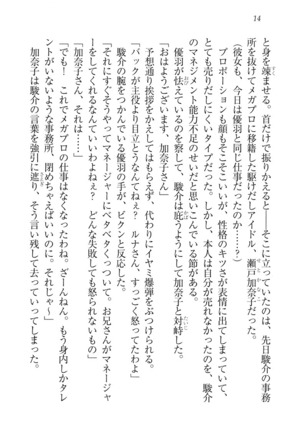 14
と身を竦ませる。首だけで振りかえると――そこに立っていたのは、先日駿介の事務
所を抜けてメガプロに移籍した駆けだしアイドル、瀬戸加奈子だった。
(彼女も、今日は優羽と同じ仕事だったのか……?)
プロポーションも顔もそこそこいいが、性格のキツさが表情に出てしまっていて、
とても売りだしにくいタイプだった。しかし、本人は自分が売れなかったのを、駿介
のマネジメント能力不足のせいだと思いこんでいる節がある。
優羽が怯えているのを察して、駿介は庇うようにして加奈子と対峙した。
「おはようございます、加奈子さん」
予想通り挨拶をかえしてはもらえず、代わりにイヤミ爆弾をぶつけられる。
「バックが主役より目立とうなんてね? ルナさん、すっごく怒ってたわよ」
駿介の腕のなかでいる優羽の手が、ビクンと反応した。
「それにすぐそうやってマネージャーにベタベタくっついて。お兄さんがマネージャ
ーをしてくれるなんていいわよねぇ? どんな失敗しても怒られないもの」
「加奈子さん、それは……」
「でも! これでメガプロの仕事はなくなったわね。ざーんねん。もう身内しかタレ
ントがいないような事務所、閉めちゃえばいいのに。それじゃ～」
加奈子は駿介の言葉を強引に遮り、そう言い残して去っていってしまった。